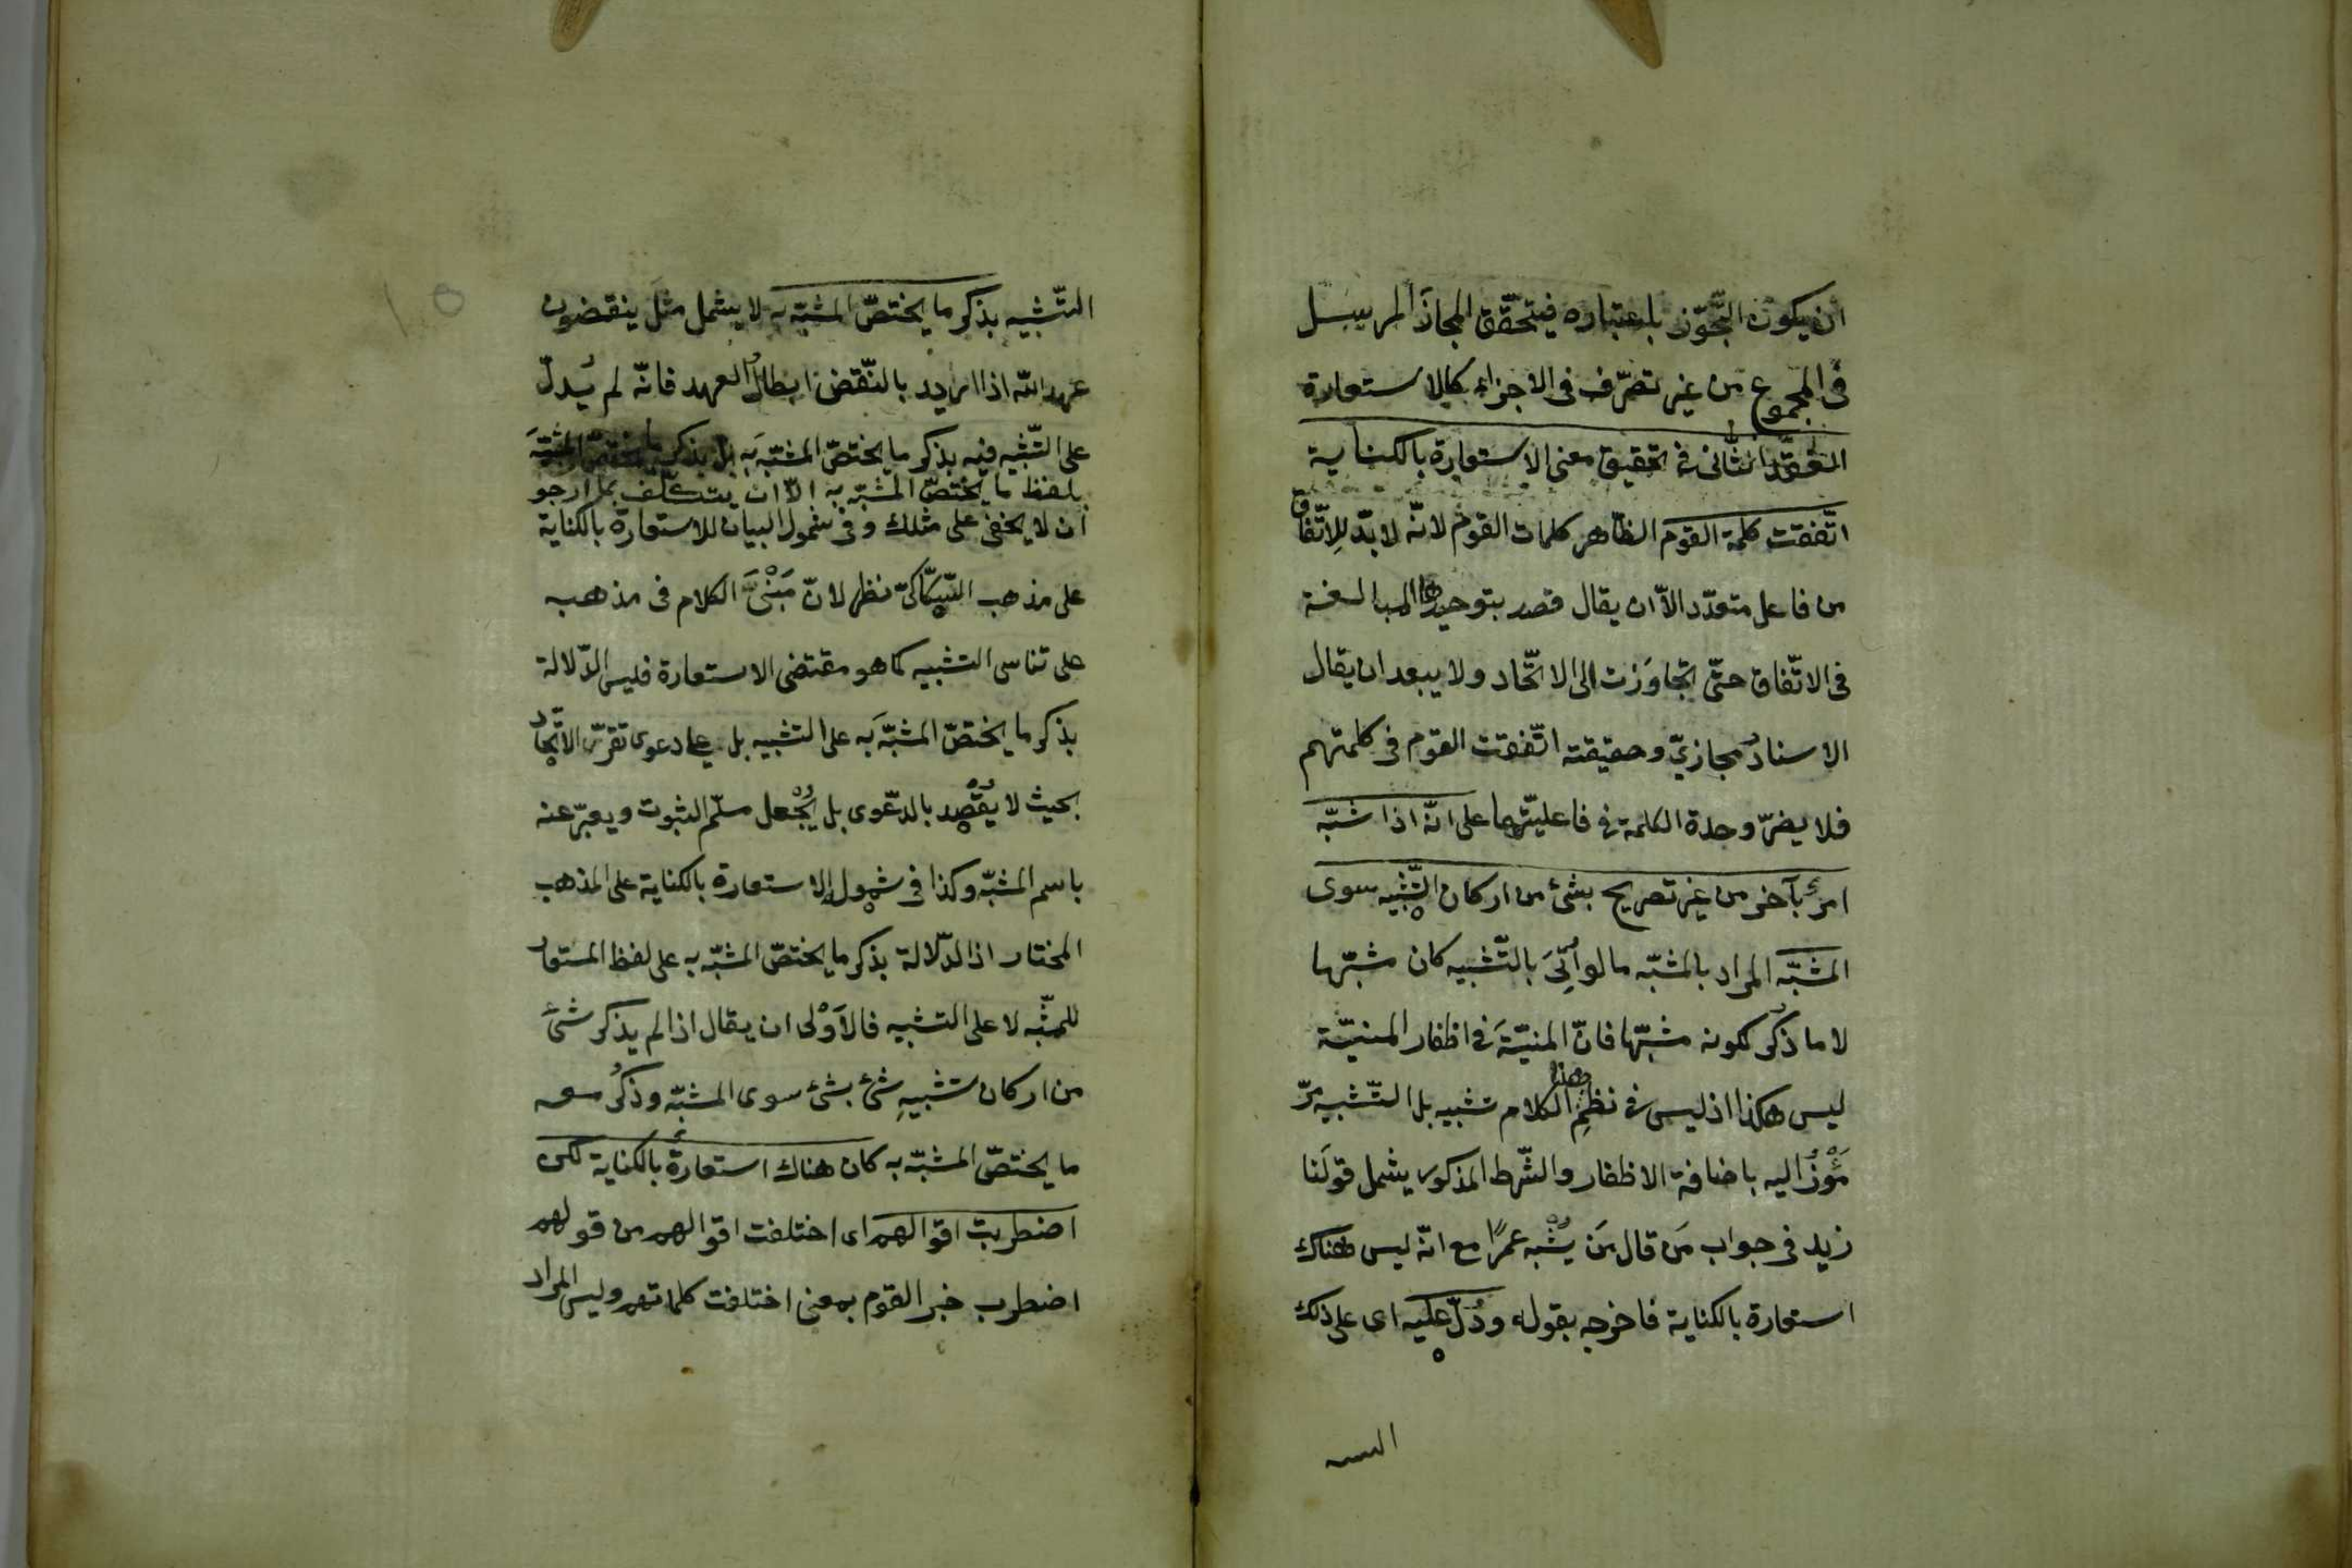 ان يكون التّجوّز باعتباره فيتحقّق المجاز المرسل
فى المجموع من غير تصرّف فى الاجزاء كالاستعارة
العقد الثّانى فى تحقيق معنى الاستعارة بالكناية
اتّفقت كلمة القوم الظّاهر كلمات القوم لانّه لا بدّ للاِتّفاق
من فاعل متعدّد الاّ ان يقال قصد بتوحيدها المبالغة
فى الاتّفاق حتّى تجاوَزت الى الاتّحاد ولا يبعد ان يقال
الاسنادُ مجازىّ وحقيقته اتّفقت القوم فى كلمتهم
فلا يضرّ وحدة الكلمة فى فاعليّتها على انّه اذا شبّه
امرٌ بآخر من غير تصريح بشئ من اركان التّشبيه سوى
المشبّه المراد بالمشبّه ما لو اُتِىَ بالتّشبيه كان مشبّها
لا ما ذُكر لكونه مشبّها فانّ المنيّةَ فى اظفار المنيّة
ليس هكذا اذ ليس فى نظمِ هذا الكلام تشبيه بل التّشبيه مرّ
مَرْمُوْزٌ اليه باضافة الاظفار والشّرط المذكور يشمل قولَنا
زيد فى جواب مَن قال مَن يُشْبه عمرًا مع انّه ليس هناك
استعارة بالكناية فاخرجه بقوله ودُلّ عليه اى على ذلك
التّشبيه بذكر ما يختصّ المشبّه به لا يشمل مثلَ ينقضون
عهد اللّه اذا اريد بالنّقض ابطالُ العهد فانّه لم يُدلّ
على التّشبيه فيه بذكر ما يختصّ المشبّه بَه بل بذكر ما يختصّ المشبّهَ
بلفظ ما يختصّ المشبّه به الاّ ان يتكلّف بما ارجو
ان لا يخفى على مثلك وفى شمول البيان للاستعارة بالكناية
على مذهب السّكّاكىّ نظر لانّ مَبْنَى الكلام فى مذهبه
على تناسى التشبيه كما هو مقتضى الاستعارة فليس الدّلالة
بذكر ما يختصّ المشبّه بَه على التشبيه بل على دعوى تقرّر الاتّحاد
بحيث لا يُقْصد بالدّعوى بل يُجْعل مسلّم الثبوت ويعبّر عنه
باسم المشبّه وكذا فى شمول الاستعارة بالكناية على المذهب
المختار اذ الدّلالة بذكر ما يختصّ المشبّه به على لفظ المستعار
للمشبّه لا على التشبيه فالاَوْلى ان يقال اذا لم يذكر شئٌ
من اركان تشبيهِ شئ بشئ سوى المشبّه وذُكر معه
ما يختصّ المشبّه به كان هناك استعارةٌ بالكناية لكن
اضطربت اقوالهم اى اختلفت اقوالهم من قولهم
اضطرب خبر القوم بمعنى اختلفت كلماتهم وليس المراد